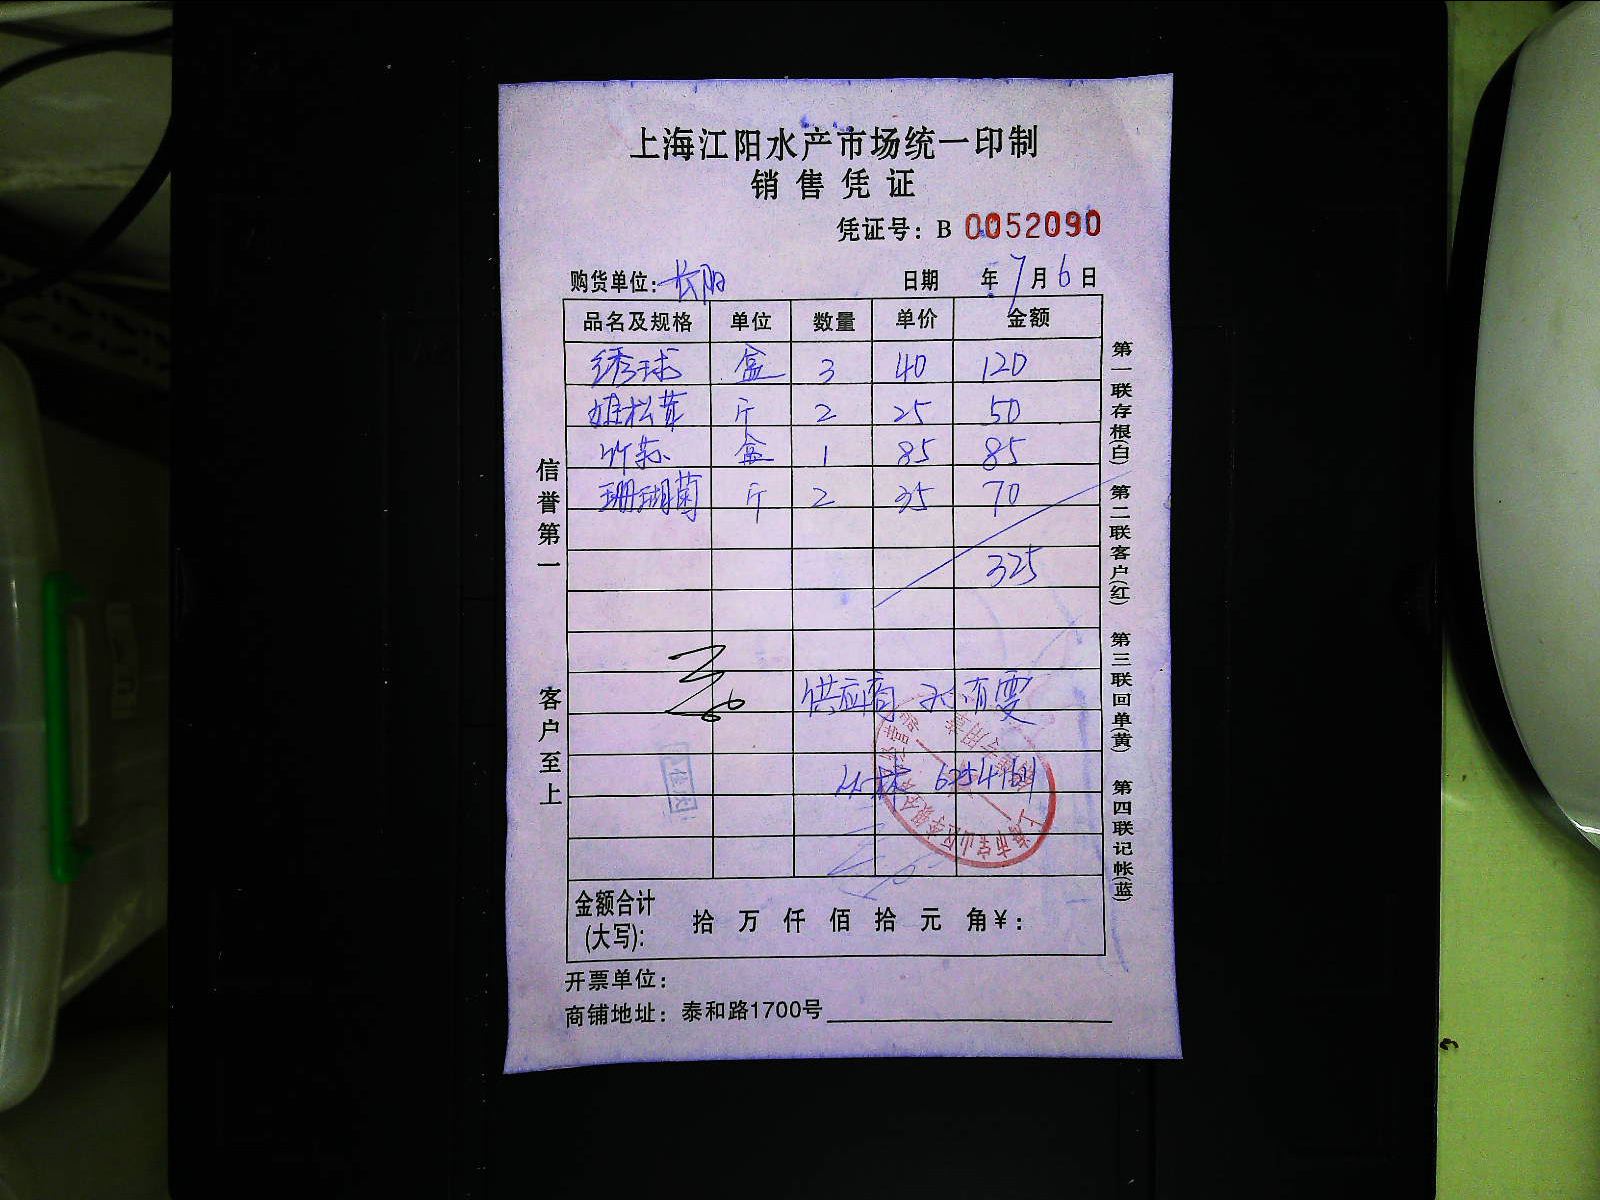 上海江阳水产市场统一印制
销售凭证
凭证号：B 0052090
购货单位：长阳 日期 年7月6日
品名及规格 单位 数量 单价 金额
绣球 盒 3 40 120
姬松茸 斤 2 25 50
竹荪 盒 1 85 85
珊瑚菌 斤 2 35 70
325
供应商
金额合计(大写)： 拾 万 仟 佰 拾 元 角¥：
开票单位：
商铺地址：泰和路1700号
信誉第一 客户至上
第一联存根(白) 第二联客户(红) 第三联回单(黄) 第四联记帐(蓝)